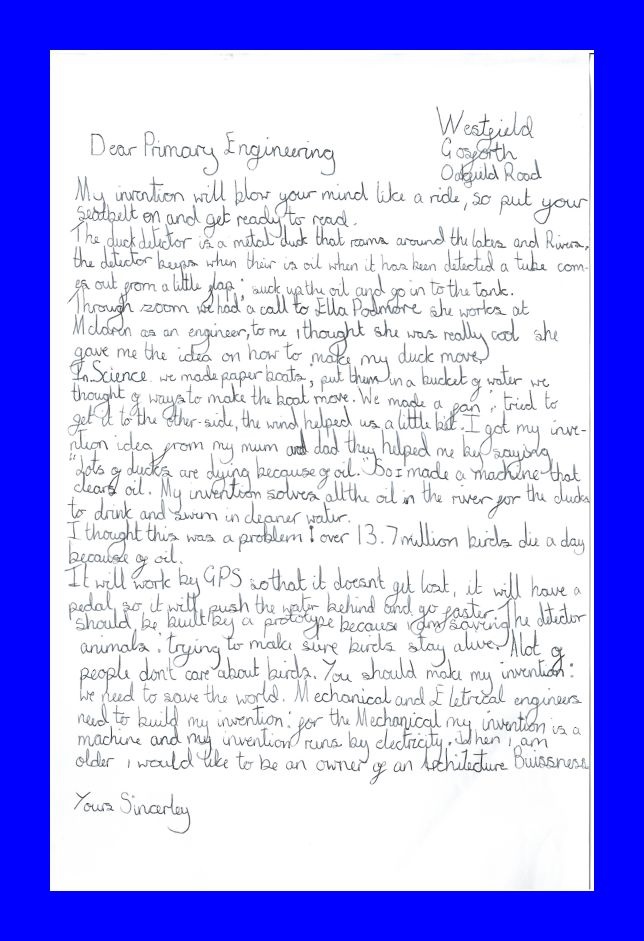 Westfield
Dear Primary Engineering
Gosforth
Oakfield Road
My invention will blow your mind like a ride, so put your
seatbelt on and get ready to read.
The duck detector is a metal duck that roams around the lakes and Rivers,
the detector beeps when their is oil when it has been detected a tube com-
es out from a little flap; suck up the oil and go in to the tank.
Through zoom we had a call to Ella Podmore she works at
Mclaren as an engineer, to me i thought she was really cool she
gave me the idea on how to make my duck move.
In Science we made paper boats; put them in a bucket of water we
thought of ways to make the boat move. We made a fan; tried to
get it to the other-side, the wind helped us a little bit. I got my inve-
ntion idea from my mum and dad they helped me by saying
"Lots of ducks are dying because of oil." So i made a machine that
clears oil. My invention solves all the oil in the river for the ducks
to drink and swim in cleaner water.
I thought this was a problem! over 13.7 million birds die a day
because of oil.
It will work by GPS so that it doesnt get lost, it will have a
pedal, so, it will push the water behind and go faster. The detector
should be built by a prototype because i am saving
animals; trying to make sure birds stay alive. Alot of
people don't care about birds. You should make my invention:
we need to save the world. Mechanical and Eletrical engineers
need to build my invention: for the Mechanical my invention is a
machine and my invention runs by electricity. When i am
older i would like to be an owner of an Architecture Buissness
Yours Sincerley